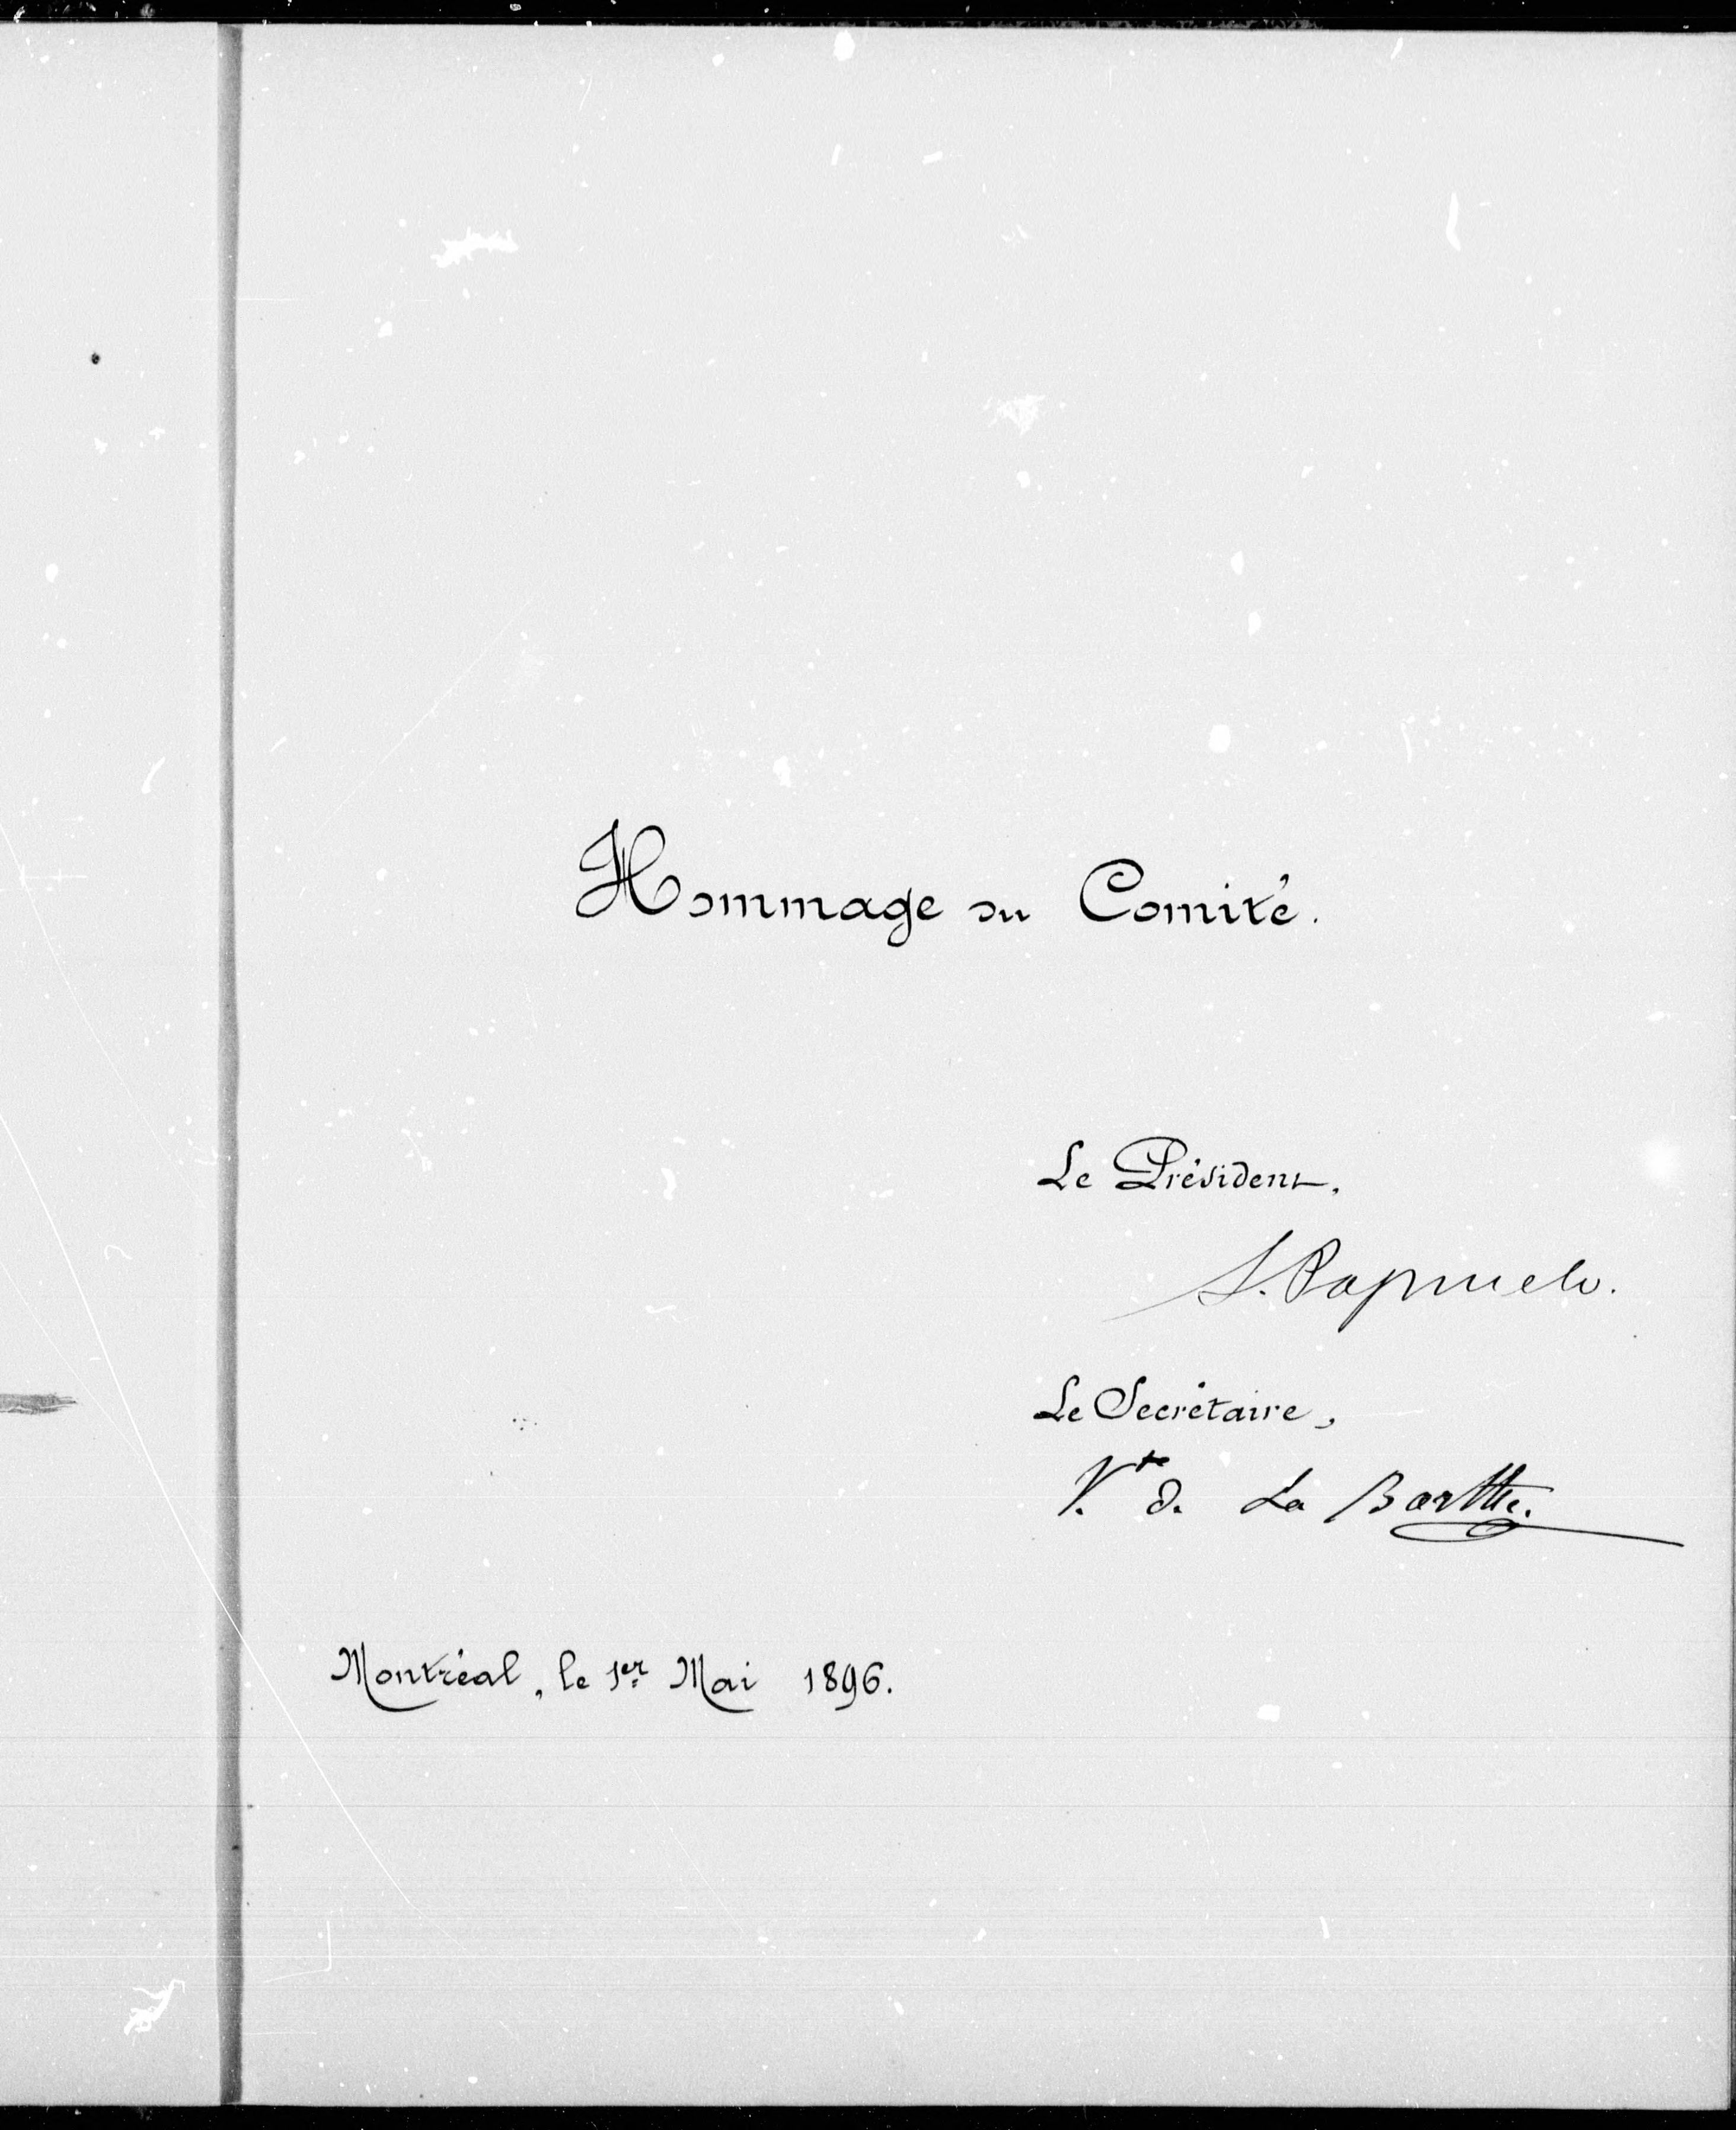 Hommage du Comité.
Le Président,
S. Pagnuelo.
Le Secrétaire,
V.te de La Barthe.
Montréal, le 1er Mai 1896.